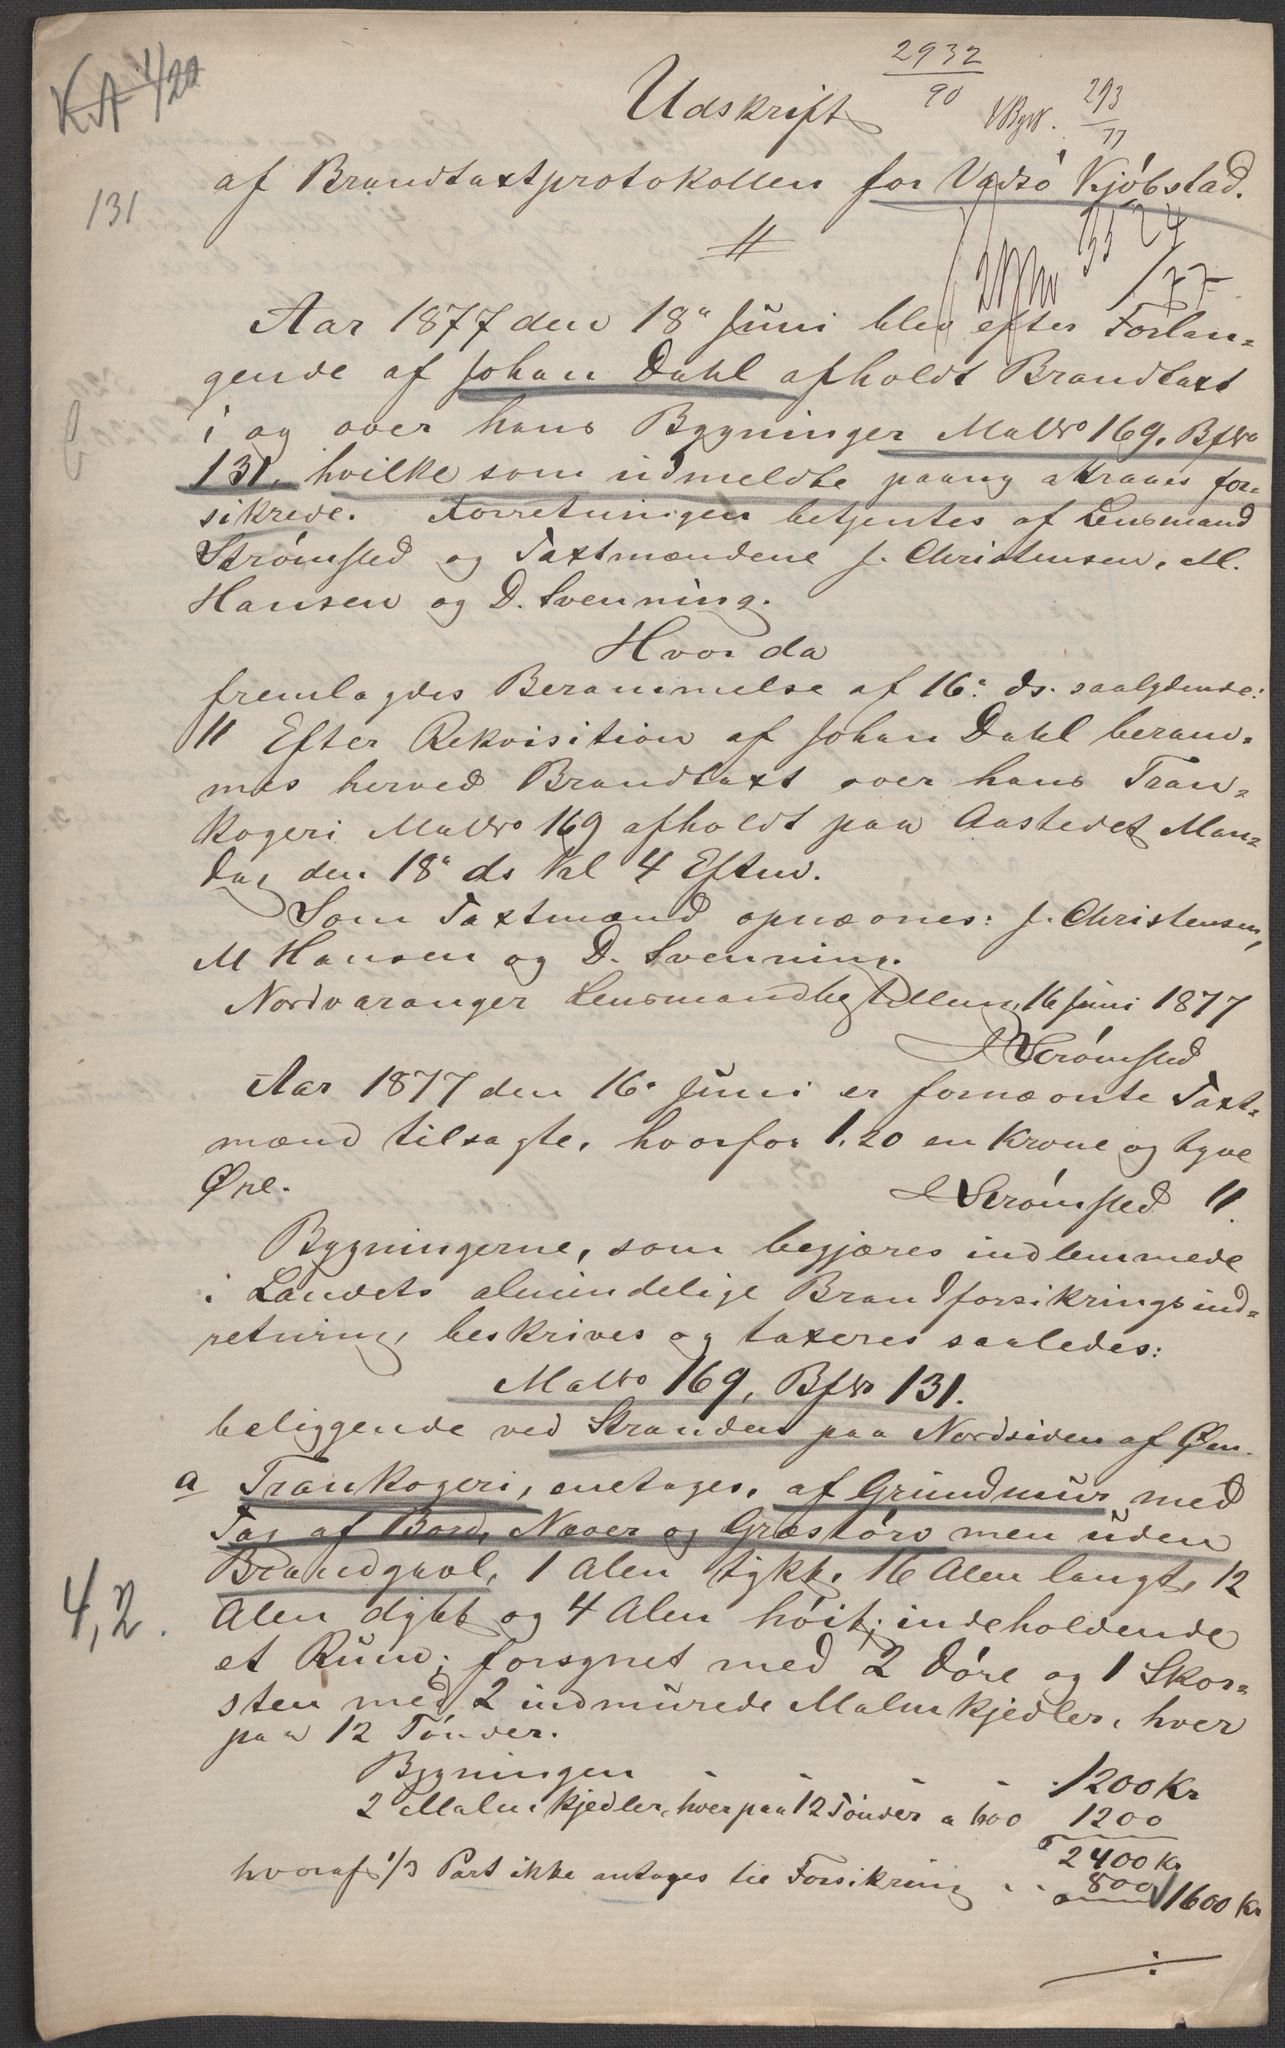 KA 1/20
2932
90
Udskrift
293
77
af Brandtaxtprotokollen for Vadsö Kjöbstad.
131
3524
/77
Aar 1877 den 18de Juni blev efter Forlan-
gende af Johan Dahl afholdt Brandtaxt
i og over hans Bygninger Mat No 169, Bf No
131, hvilke som udmeldte paany attraaes for-
sikrede. Forretningen betjentes af Lensmand
Strömsted og Taxtmændene J. Christensen, M.
Hansen og D. Svenning.
Hvor da
fremlagdes Berammelse af 16de ds. saalydende:
" Efter Rekvisition af Johan Dahl beram-
mes herved Brandtaxt over hans Tran-
kogeri Mat No 169 afholdt paa Aastedet Man-
dag den 18de ds Kl 4 Eftm.
Som Taxtmænd opnævnes: J. Christensen,
M Hansen og D. Svenning.
Nordvaranger Lensmandbestilling 16 Juni 1877
Strömsted
Aar 1877 den 16de Juni er fornævnte Taxt-
mænd tilsagte, hvorfor 1,20 en Krone og tyve
Øre.
Strömsted "
Bygningerne, som begjæres indlemmede
i Landets almindelige Brandforsikringsind-
retning, beskrives og taxeres saaledes:
Mat No 169, Bf No 131.
beliggende ved Stranden paa Nordsiden af Øen.
a Trankogeri, enetages, af Grundmur med
Tag af Bord, Næver og Græstörv men uden
Brandgavl, 1 Alen tykk, 16 Alen langt, 12
4,2.
Alen dybt og 4 Alen höit; indeholdende
et Rum; forsynet med 2 Döre og 1 Skor-
sten med 2 indmurede Malmkjedler, hver
paa 12 Tönder.
Bygningen - - - - 1200 Kr
2 Malmkjedler, hver paa 12 Tönder a 600 1200
2400 Kr
hvoraf 1/3 Part ikke antages til Forsikring - - 800 1600 Kr